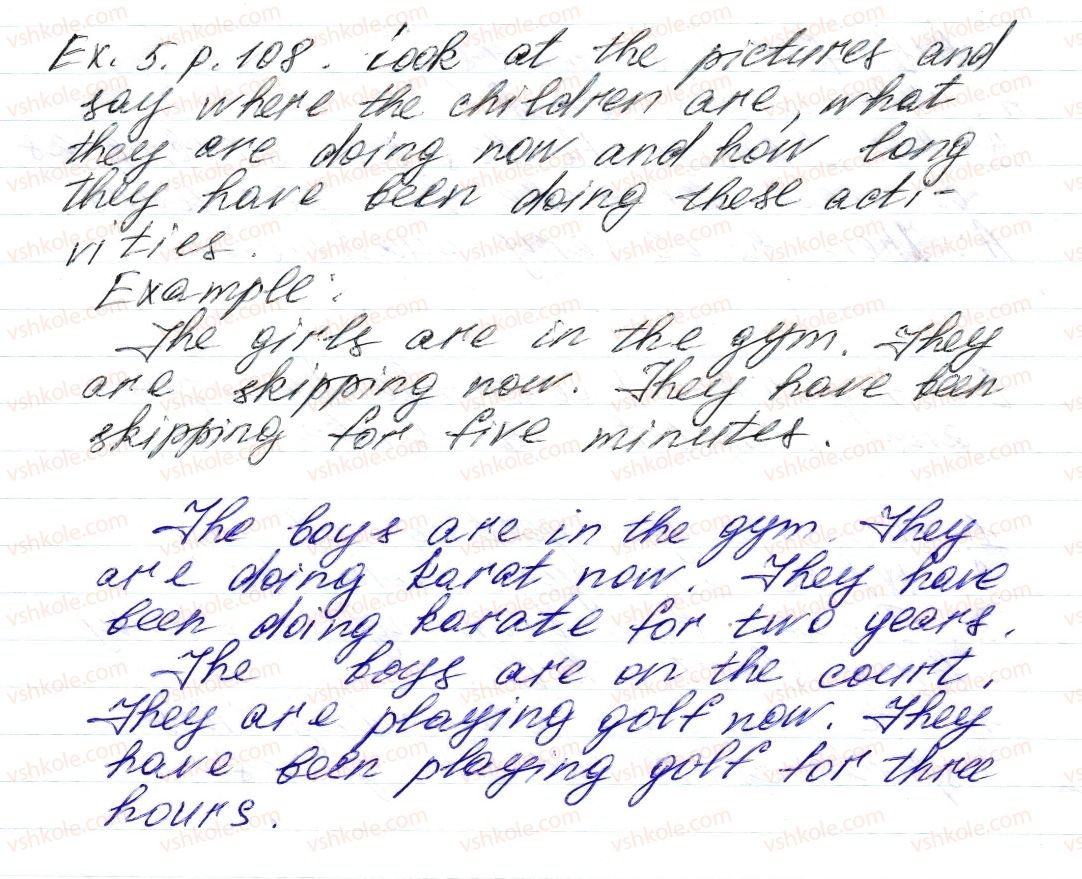 Ex. 5. p. 108. Look at the pictures and
say where the children are, what
they are doing now and how long
they have been doing these acti-
vities.
Example:
The girls are in the gym. They
are skipping now. They have been
skipping for five minutes.
The boys are in the gym. They
are doing karat now. They have
been doing karate for two years.
The boys are on the court.
They are playing golf now. They
have been playing golf for three
hours.